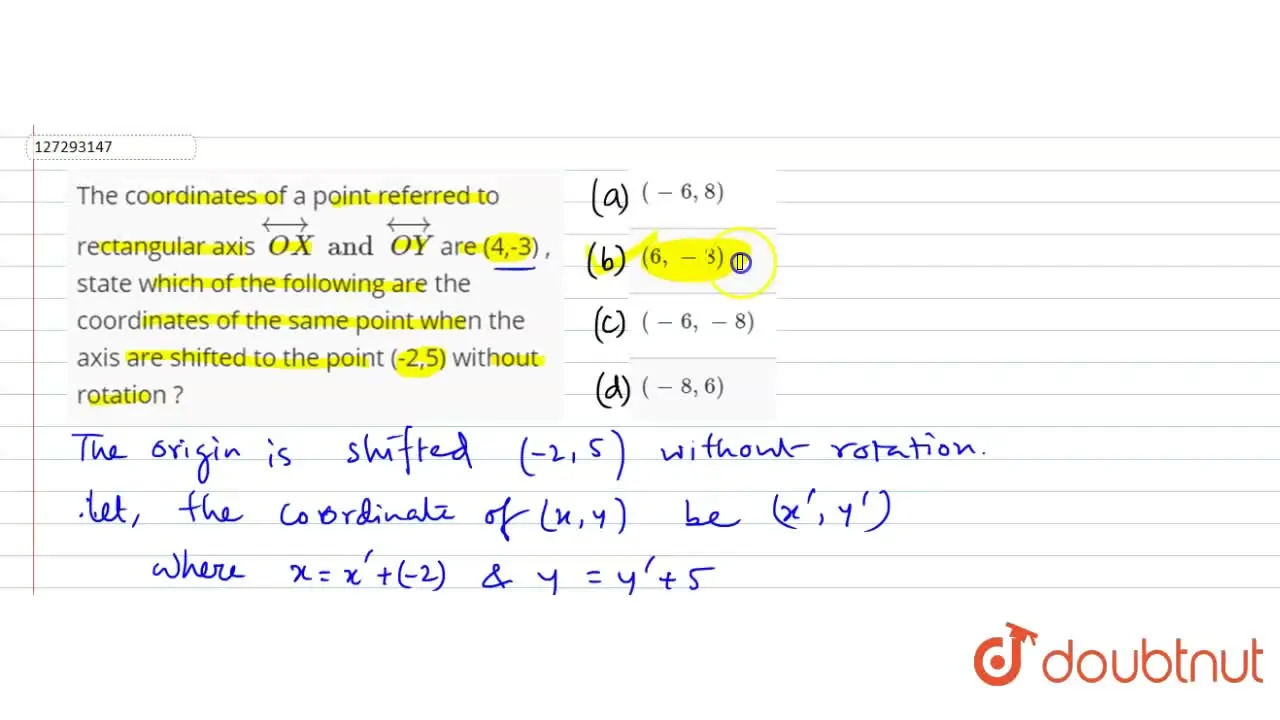 127293147
The coordinates of a point referred to
rectangular axis OX and OY are (4,-3) ,
state which of the following are the
coordinates of the same point when the
axis are shifted to the point (-2,5) without
rotation ?
(a) ( − 6, 8)
(b) (6, − 8)
(c) ( − 6, − 8)
(d) ( − 8, 6)
The origin is shifted (-2, 5) without rotation.
Let, the coordinate of (x, y) be (x', y')
where x = x' + (-2) & y = y' + 5
doubtnut